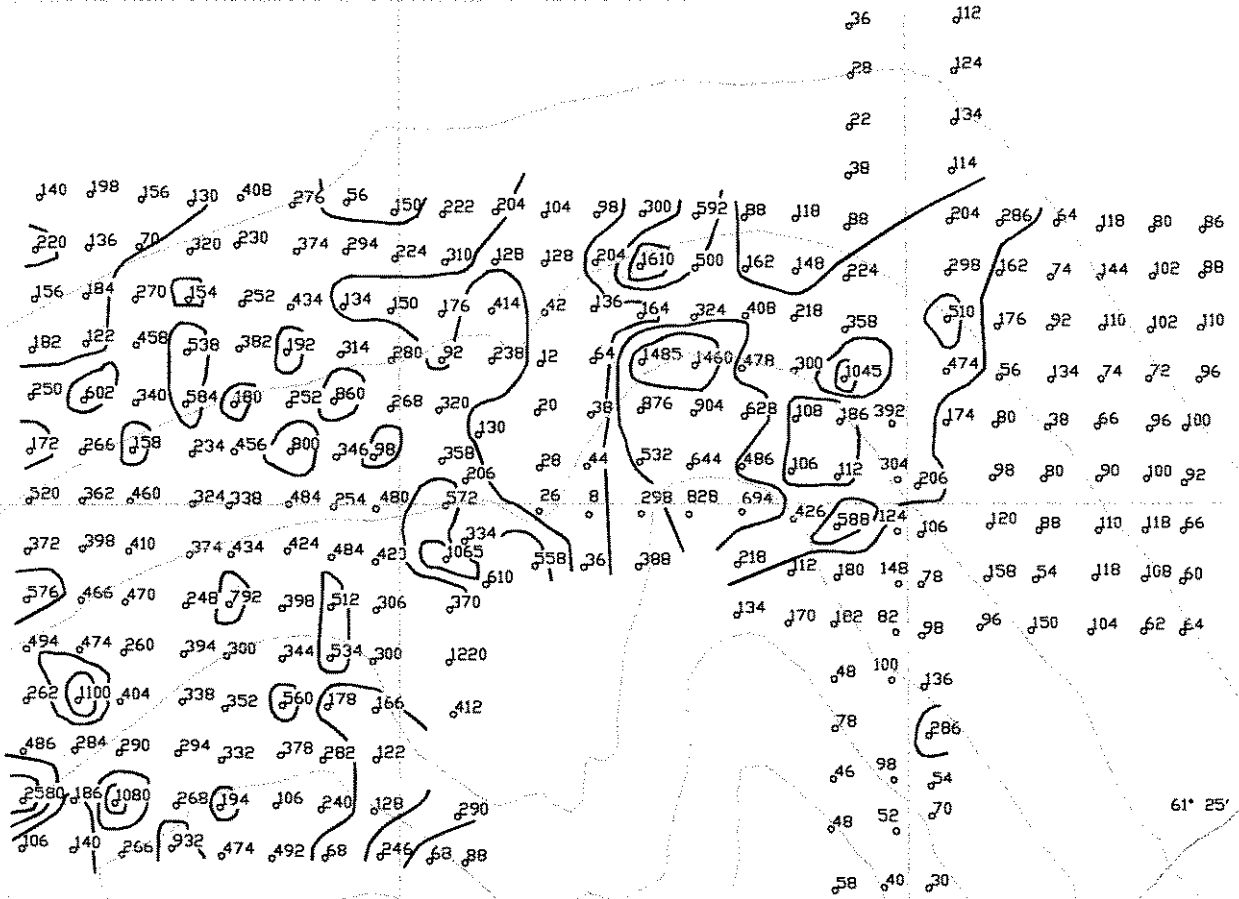 36 112
28 124
22 134
38 114
140 198 156 130 408 276 56 150 222 204 104 98 300 592 88 118 88 204 286 64 118 80 86
220 136 70 320 230 374 294 224 310 128 128 204 1610 500 162 148 224 298 162 74 144 102 98
156 184 270 154 252 434 134 150 176 414 42 136 164 324 408 218 358 510 176 92 110 102 110
182 122 458 538 382 192 314 280 92 238 12 64 1485 1460 478 300 1045 474 56 134 74 72 96
250 602 340 584 180 252 860 268 320 20 38 876 904 628 108 186 392 174 80 38 66 96 100
172 266 158 234 456 800 346 98 358 130 28 44 532 644 486 106 112 304 206 98 80 90 100 92
520 362 460 324 338 484 254 480 572 206 26 8 298 828 694 426 588 124 106 120 88 110 118 66
372 398 410 374 434 424 484 423 1065 334 558 36 388 218 112 180 148 78 158 54 118 108 60
576 466 470 248 792 398 512 306 370 610 134 170 182 82 98 96 150 104 62 64
494 474 260 394 300 344 534 300 1220 48 100 136
262 1100 404 338 352 560 178 166 412 78 286
486 284 290 294 332 378 282 122 46 98 54
2580 186 1080 268 194 106 240 128 290 48 52 70 61° 25'
106 140 266 932 474 492 68 246 68 88 58 40 30